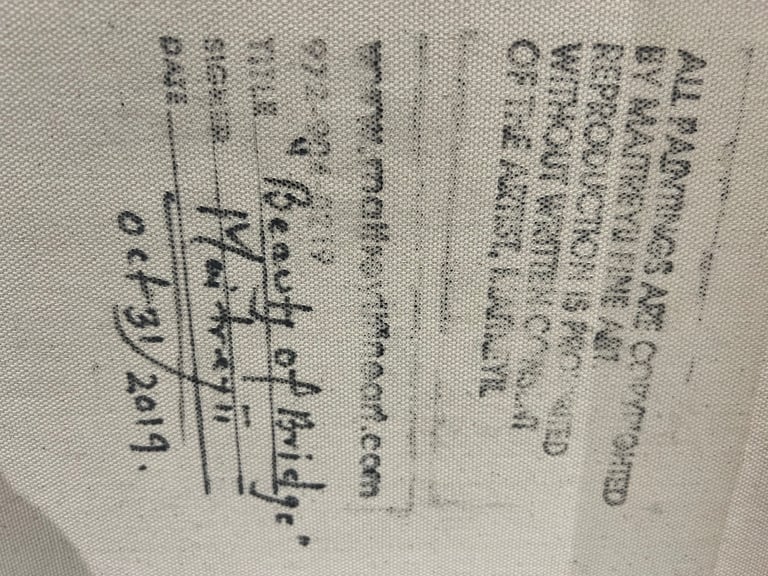 ALL PAINTINGS ARE COPYRIGHTED
BY MAITREYII FINE ART
REPRODUCTION IS PROHIBITED
WITHOUT WRITTEN CONSENT
OF THE ARTIST,
www.maitreyiifineart.com
TITLE "Beauty of Bridge"
SIGNED Maitreyii
DATE Oct 31/2019.